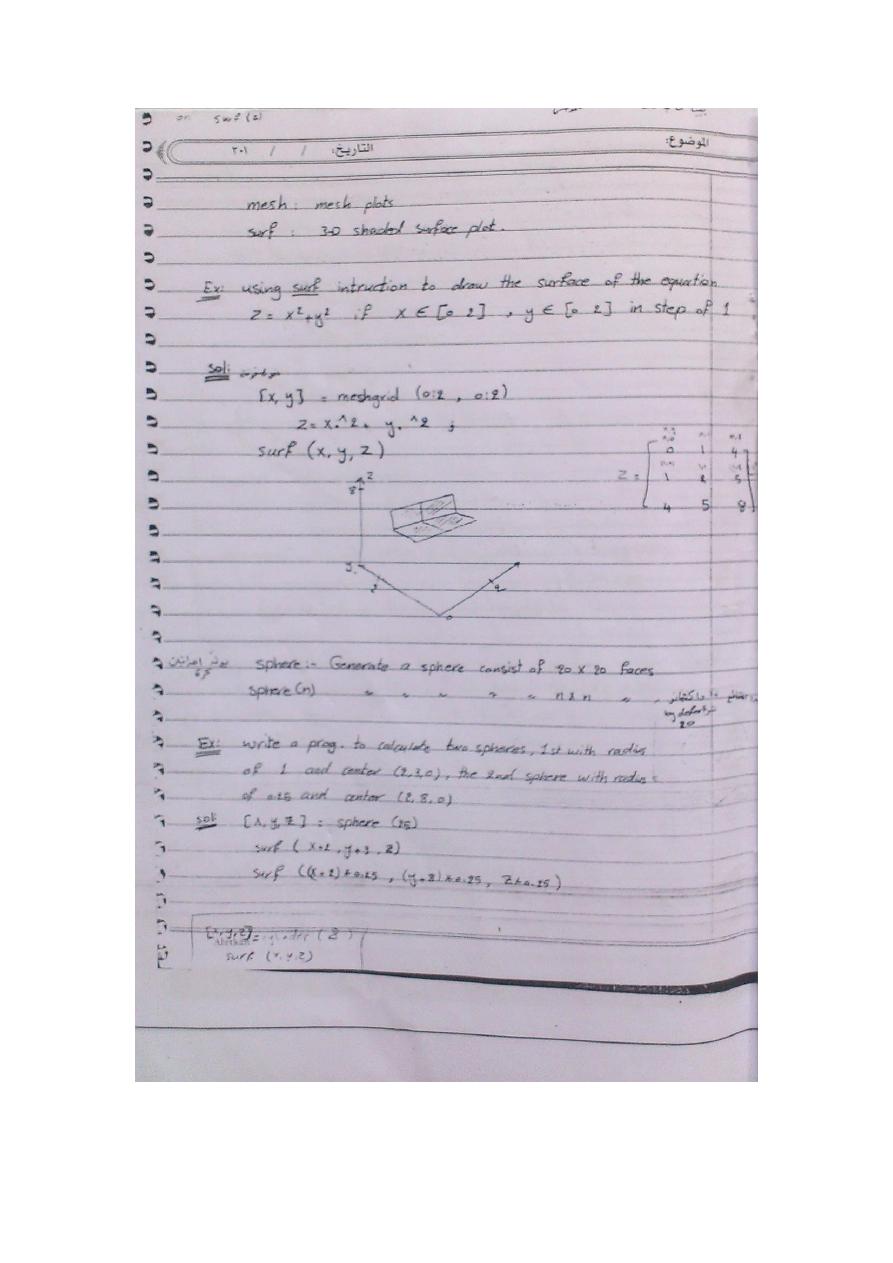 on surf (z)
الموضوع: التاريخ: / / ٢٠١
mesh : mesh plots
surf : 3-D shaded surface plot.
Ex: using surf intruction to draw the surface of the equation
Z = x²+y² if x ∈ [0 2] , y ∈ [0 2] in step of 1
sol:
[x, y] = meshgrid (0:2 , 0:2)
Z = x.^2 + y.^2 ;
surf (x, y, z)
Z = [ 0 1 4
1 2 5
4 5 8 ]
8 Z
y
2 2
0
sphere :- Generate a sphere consist of 20 x 20 faces
sphere (n) " " " " " n x n "
by default
20
Ex: write a prog. to calculate two spheres, 1st with radius
of 1 and center (2,3,0), the 2nd sphere with radius
of 0.25 and center (2,8,0)
sol: [x, y, z] = sphere (25)
surf ( x+2 , y+3 , z)
surf ((x+2)*0.25 , (y+8)*0.25 , z*0.25)
[x,y,z] = (8)
surf (x,y,z)